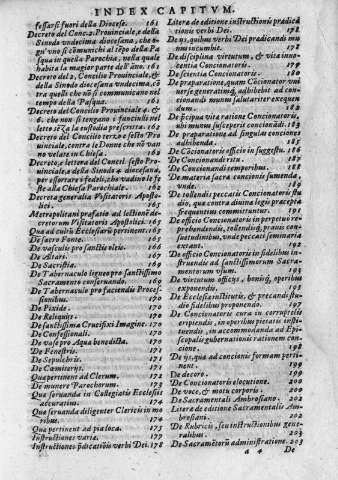 INDEX CAPITVM.
fessarsi fuori della Diocese. 161
Decreto del Conc. 2. Prouinciale, & della
Sinodo vndecima diocesana, che o-
gn'vno si comunichi al tẽpo della Pa
squa in quella Parochia, nella quale
habita la maggior parte dell'āno. 161
Decreto del 2. Concilio Prouinciale, &
della Sinodo diocesana vndecima, cõ
tra quelle che nõ si communicano nel
tempo della Pasqua. 161
Decreto del Concilio Prouinciale 4. &
6. che non si tengano i fanciulli nel
letto
Decreto del Concilio terzo & sesto Pro
uinciale, contra le Donne che nõ van
no velate in Chiesa. 162
Decreto, & lettera del Concil. sesto Pro-
uinciale, & della Sinodo
per essortare i fedeli, che vadino le fe
ste alla Chiesa Parochiale. 162
Decreta generalia Visitatoris Aposto-
lici. 165
Metropolitani præfatio ad lectionē de-
cretorum Visitatoris Apostolici. 165
Quæ ad cultũ Ecclesiarũ pertinent. 165
De sacro Fonte. 165
De vasculo pro sanctis oleis.
De Altari.
De Sacristia.
De Tabernaculo ligneo pro sanctissimo
Sacramento conseruando. 169
De Tabernaculo pro faciendis Proces-
sionibus. 170
De Pixide. 170
De Reliquijs. 170
De sanctissima Crucifixi Imagine. 170
De Confessionali. 170
De vase pro Aqua benedicta. 170
De Fenestris. 171
De Sepulchris. 171
De Cœmiterijs. 171
Quæ pertinent ad Clerum. 172
De munere Parochorum. 173
Quæ seruanda in Collegiatis Ecclesijs
accuratim. 174
Quæ seruanda diligenter Clericis in mo
ribus. 174
Quæ pertinent ad pia loca. 175
Instructiones variæ. 177
Instructiones prædicatiõis verbi Dei. 178
Literæ de editione instructionis prædica
tionis verbi Dei. 178
De ijs, quibus verbi Dei prædicandi mu
nus incumbit. 178
De disciplina virtutum, & vitæ inno-
centia Concionatoris. 179
De scientia Concionatoris. 180
De præparatione, quam Cõcionator vni
uerse generatimq. adhibebit ad con-
cionandi munus salutariter exequen
dum. 182
De quibus vita ratione Concionatoris, vbi
munus susceperit concionandi. 183
De præparatione ad singulas conciones
adhibenda. 185
De Cõcionatoris officio in suggestu. 185
De Concionandi ritu. 187
De Concionandi temporibus. 188
De materia sacræ concionis sumenda.
De tollendis peccatis Concionatoris stu
dio, quæ contra diuinæ legis præcepta
frequentius committuntur. 191
De officio Concionatoris in perpetuo re
prehendendis, tollendisq. prauis con-
suetudinibus, vnde peccati seminaria
extant. 192
De officio Concionatoris in fidelibus in-
struendis ad sanctissimorum Sacra-
mentorum vsum. 193
De virtutum officijs, bonisq. operibus
exponendis. 193
De Ecclesiæ institutis, & precandi stu-
dio fidelibus proponendo. 196
De Concionatoris cura in corruptelis
eripiendi, in operibus pietatis insti-
tuendi, in accommodanda ad Epi-
scopalis gubernationis rationem con-
cione.
De ijs, quæ ad concionis formam perti-
nent. 199
De decoro. 199
De Concionatoris elocutione. 200
De voce, & motu corporis. 200
De Sacramentali Ambrosiano. 202
Literæ de editione Sacramentalis Am-
brosiani. 202
De Rubricis, seu instructionibus gene-
ralibus. 203
De Sacramẽtorũ administratione. 203
a 4 De